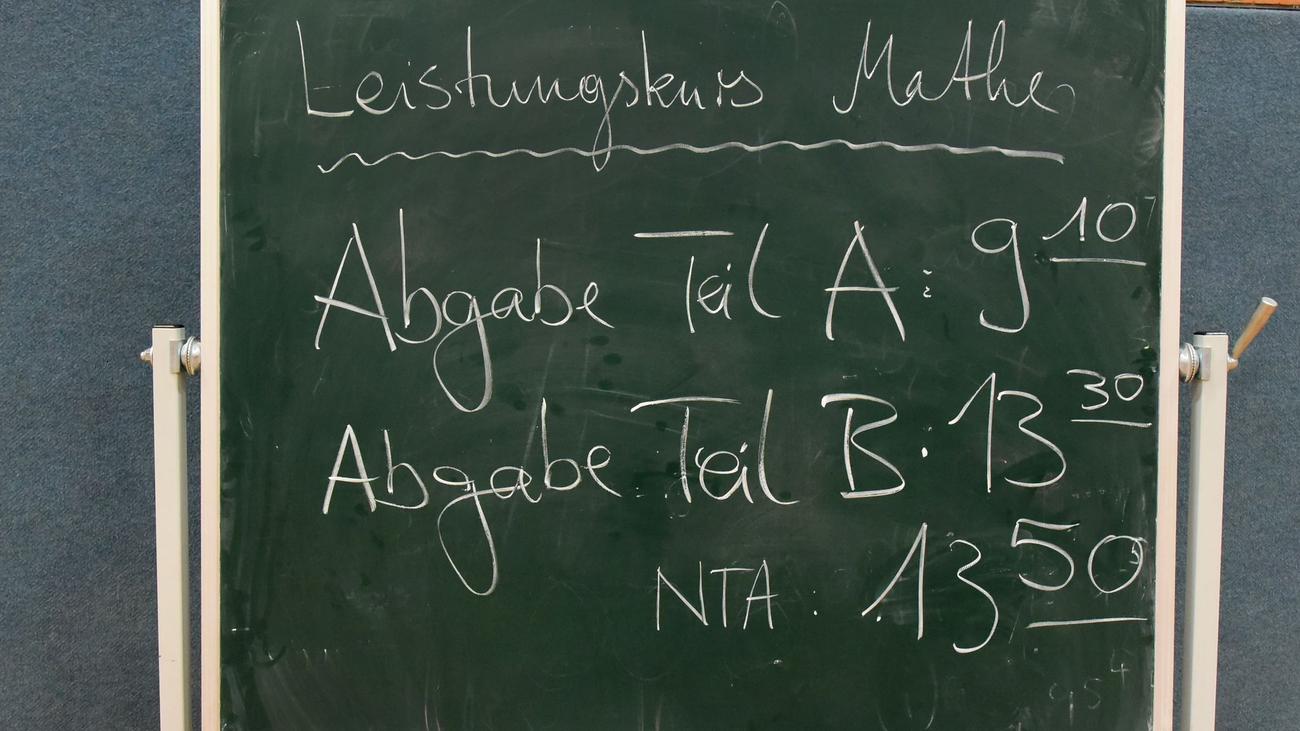 Leistungskurs Mathe
Abgabe Teil A: 9 10
Abgabe Teil B: 13 30
NTA: 13 50